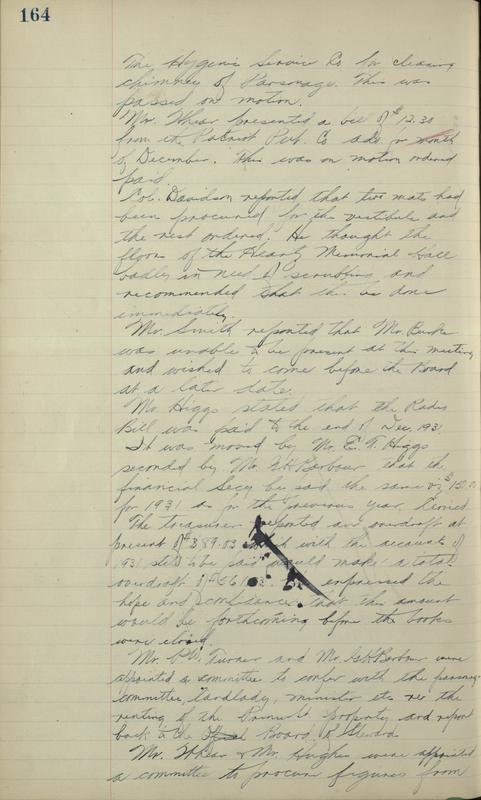 164
The Hygenic Service Co for cleaning
chimney of Parsonage. This was
passed on motion.
Mr. Whear presented a bill of $12.30
from the Patriot Pub. Co ads. for month
of December. This was on motion ordered
paid
Col. Davidson reported that two mats had
been procured for the vestibule and
the rest ordered. He thought the
floors of the Heartz Memorial Hall
badly in need of scrubbing and
recommended that this be done
immediately.
Mr. Smith reported that Mr. Burke
was unable to be present at this meeting
and wished to come before the Board
at a later date.
Mr. Higgs stated that the Radio
Bill was paid to the end of Dec. 1931
It was moved by Mr. E. T. Higgs
seconded by Mr. GK Barbour that the
financial Secy be paid the same viz
for 1931 as for the previous year. Carried
The treasurer reported an overdraft at
present of $389.03 which with the accounts of
1931 still to be paid would make a total
overdraft of expressed the
hope and confidence that this amount
would be forthcoming before the books
were closed.
Mr. Turner and Mr. GK Barbour were
appointed a committee to confer with the parsonage
committee, landlady, minister etc re the
renting of the property and report
back to the Board of Stewards
Mr. Whear & Mr. Hughes were appointed
a committee to procure figures from